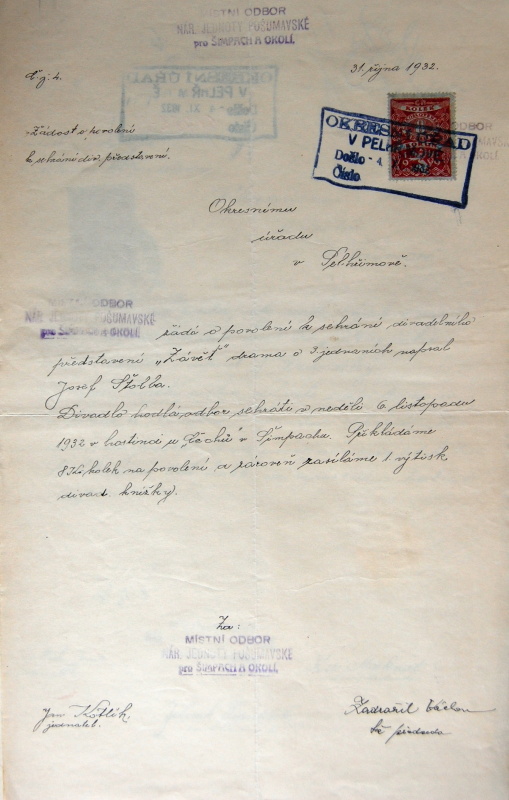 MÍSTNÍ ODBOR
NÁR. JEDNOTY POŠUMAVSKÉ
pro ŠIMPACH A OKOLÍ.
Č. j. 4.
31. října 1932.
Žádost o povolení
k sehrání div. představení.
OKRESNÍ ÚŘAD
V PELHŘIMOVĚ
Došlo - 4.
Číslo
KOLEK
Okresnímu
úřadu
v Pelhřimově.
MÍSTNÍ ODBOR
NÁR. JEDNOTY POŠUMAVSKÉ
pro ŠIMPACH A OKOLÍ. žádá o povolení k sehrání divadelního
představení „Závěť" drama o 3. jednaních napsal
Josef Štolba.
Divadlo hodlá odbor sehráti v neděli 6 listopadu
1932 v hostinci u Čechů v Šimpachu. Přikládáme
8 Kč kolek na povolení a zároveň zasíláme 1. výtisk
divad. knížky.
Za:
MÍSTNÍ ODBOR
NÁR. JEDNOTY POŠUMAVSKÉ
pro ŠIMPACH A OKOLÍ.
Jan Kotlík.
jednatel.
Zadražil Václav
předseda